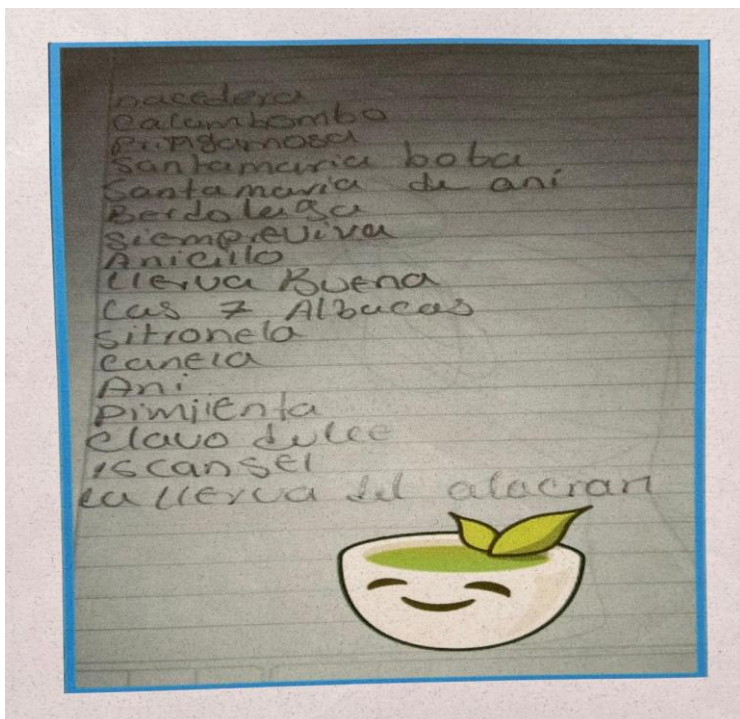 nacedera
Calambombo
Pringamosa
Santamaria boba
Santamaria de aní
Berdolaga
Siempreviva
Anicillo
Llerva Buena
Las 7 Albacas
Sitronela
canela
Ani
Pimjienta
clavo dulce
iscansel
La llerva del alacran